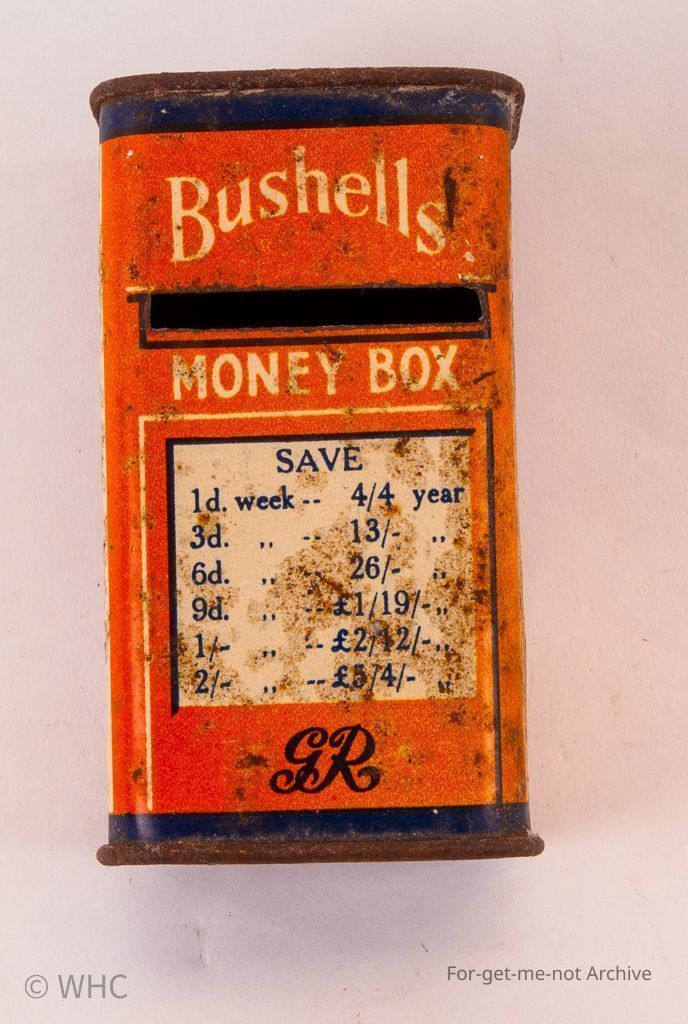 Bushells
MONEY BOX
SAVE
1d. week -- 4/4 year
3d. ,, -- 13/- ,,
6d. ,, -- 26/- ,,
9d. ,, -- £1/19/- ,,
1/- ,, -- £2/12/- ,,
2/- ,, -- £5/4/- ,,
GR
© WHC
For-get-me-not Archive